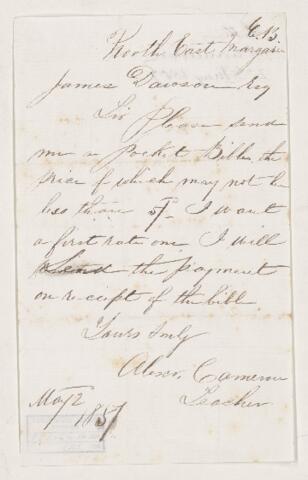 C.B.
North East Margaree
James Dawson Esq
Sir Please send
me a Pocket Bible the
price of which may not be
less than 5/- I want
a first rate one. I will
Send the payment
on receipt of the bible
Yours truly
Alexr. Cameron
Teacher
May 2
1857